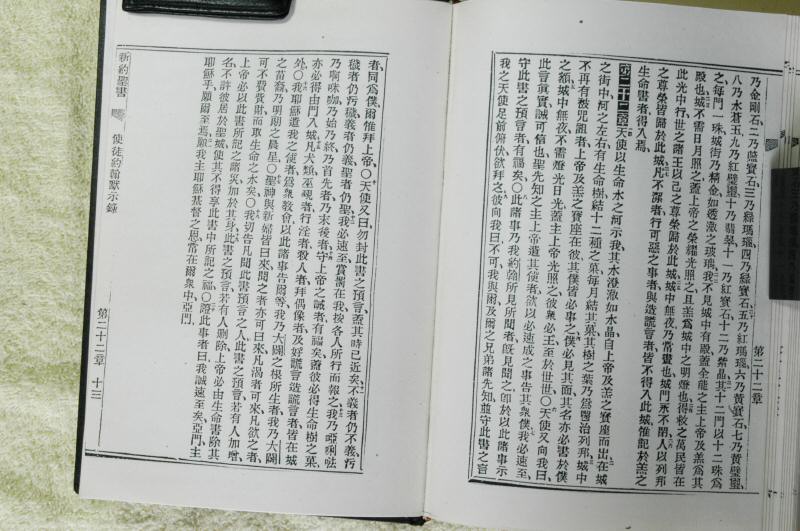 乃金剛石二乃藍寶石三乃綠瑪瑙四乃綠寶石五乃紅瑪瑙六乃黃寶石七乃黃璧璽
八乃水蒼玉九乃紅璧璽十乃翡翠十一乃紅寶石十二乃紫晶其十二門以十二珠爲
之每門一珠城街乃精金如透澈之玻璃我不見城中有殿蓋全能之主上帝及羔爲其
殿也城不需日月照之蓋上帝之榮耀光照之且羔爲城中之明燈也得救之萬民皆在
此光中行世之諸王以己之尊榮歸於此城城中無夜乃常晝也城門永不閉人以列邦
之尊榮皆歸於此城凡不潔者行可惡之事者與造謊言者皆不得入此城惟記於羔之
生命書者得入焉
第二十二章天使以生命水之河示我其水澄澈如水晶自上帝及羔之寶座而出在城
之街中河之左右有生命樹結十二種之菓每月結其菓其樹之葉乃爲醫治列邦城中
不再有被咒詛者上帝及羔之寶座在彼其僕皆必事之僕必見其面其名亦必書於僕
之額城中無夜不需燈光日光蓋主上帝光照之彼衆必王至於世世〇天使又向我曰
此言眞實誠可信也聖先知之主上帝遣其使者欲以必速成之事告其衆僕我必速至
守此書之預言者有福矣〇此諸事乃我約翰所見所聞者旣見聞之卽於以此諸事示
我之天使足前俯伏欲拜之彼向我曰不可我與爾及爾之兄弟諸先知並守此書之言
第二十二章
者同爲僕爾惟拜上帝〇天使又曰勿封此書之預言蓋其時已近矣不義者仍不義污
穢者仍污穢義者仍義聖者仍聖我必速至賞罰在我按各人所行而報之我乃啞唎𠯈
乃啊咪咖乃始乃終乃首先者乃末後者守上帝之誡者有福矣蓋彼必得生命樹之菓
亦必得由門入城凡犬類巫覡者行淫者殺人者拜偶像者及好謊言造謊言者皆在城
外〇我耶穌遣我之使者爲衆教會以此諸事告爾等我乃大闢之根所生者我乃大闢
之苗裔乃明朗之晨星〇聖神與新婦皆曰來聞之者亦可曰來凡渴者可來凡欲之者
可不費貲財而取生命之水矣〇我切告凡聞此書預言之人此書之預言若有人加增
上帝必以此書所記之諸災加於其身此書之預言若有人刪除上帝必由生命書除其
名不許彼居於聖城使其不得享此書中所記之福〇證此事者曰我誠速至矣亞門主
耶穌乎願爾至焉願我主耶穌基督之恩常在爾衆中亞門
新約聖書 使徒約翰默示錄 第二十二章 十三